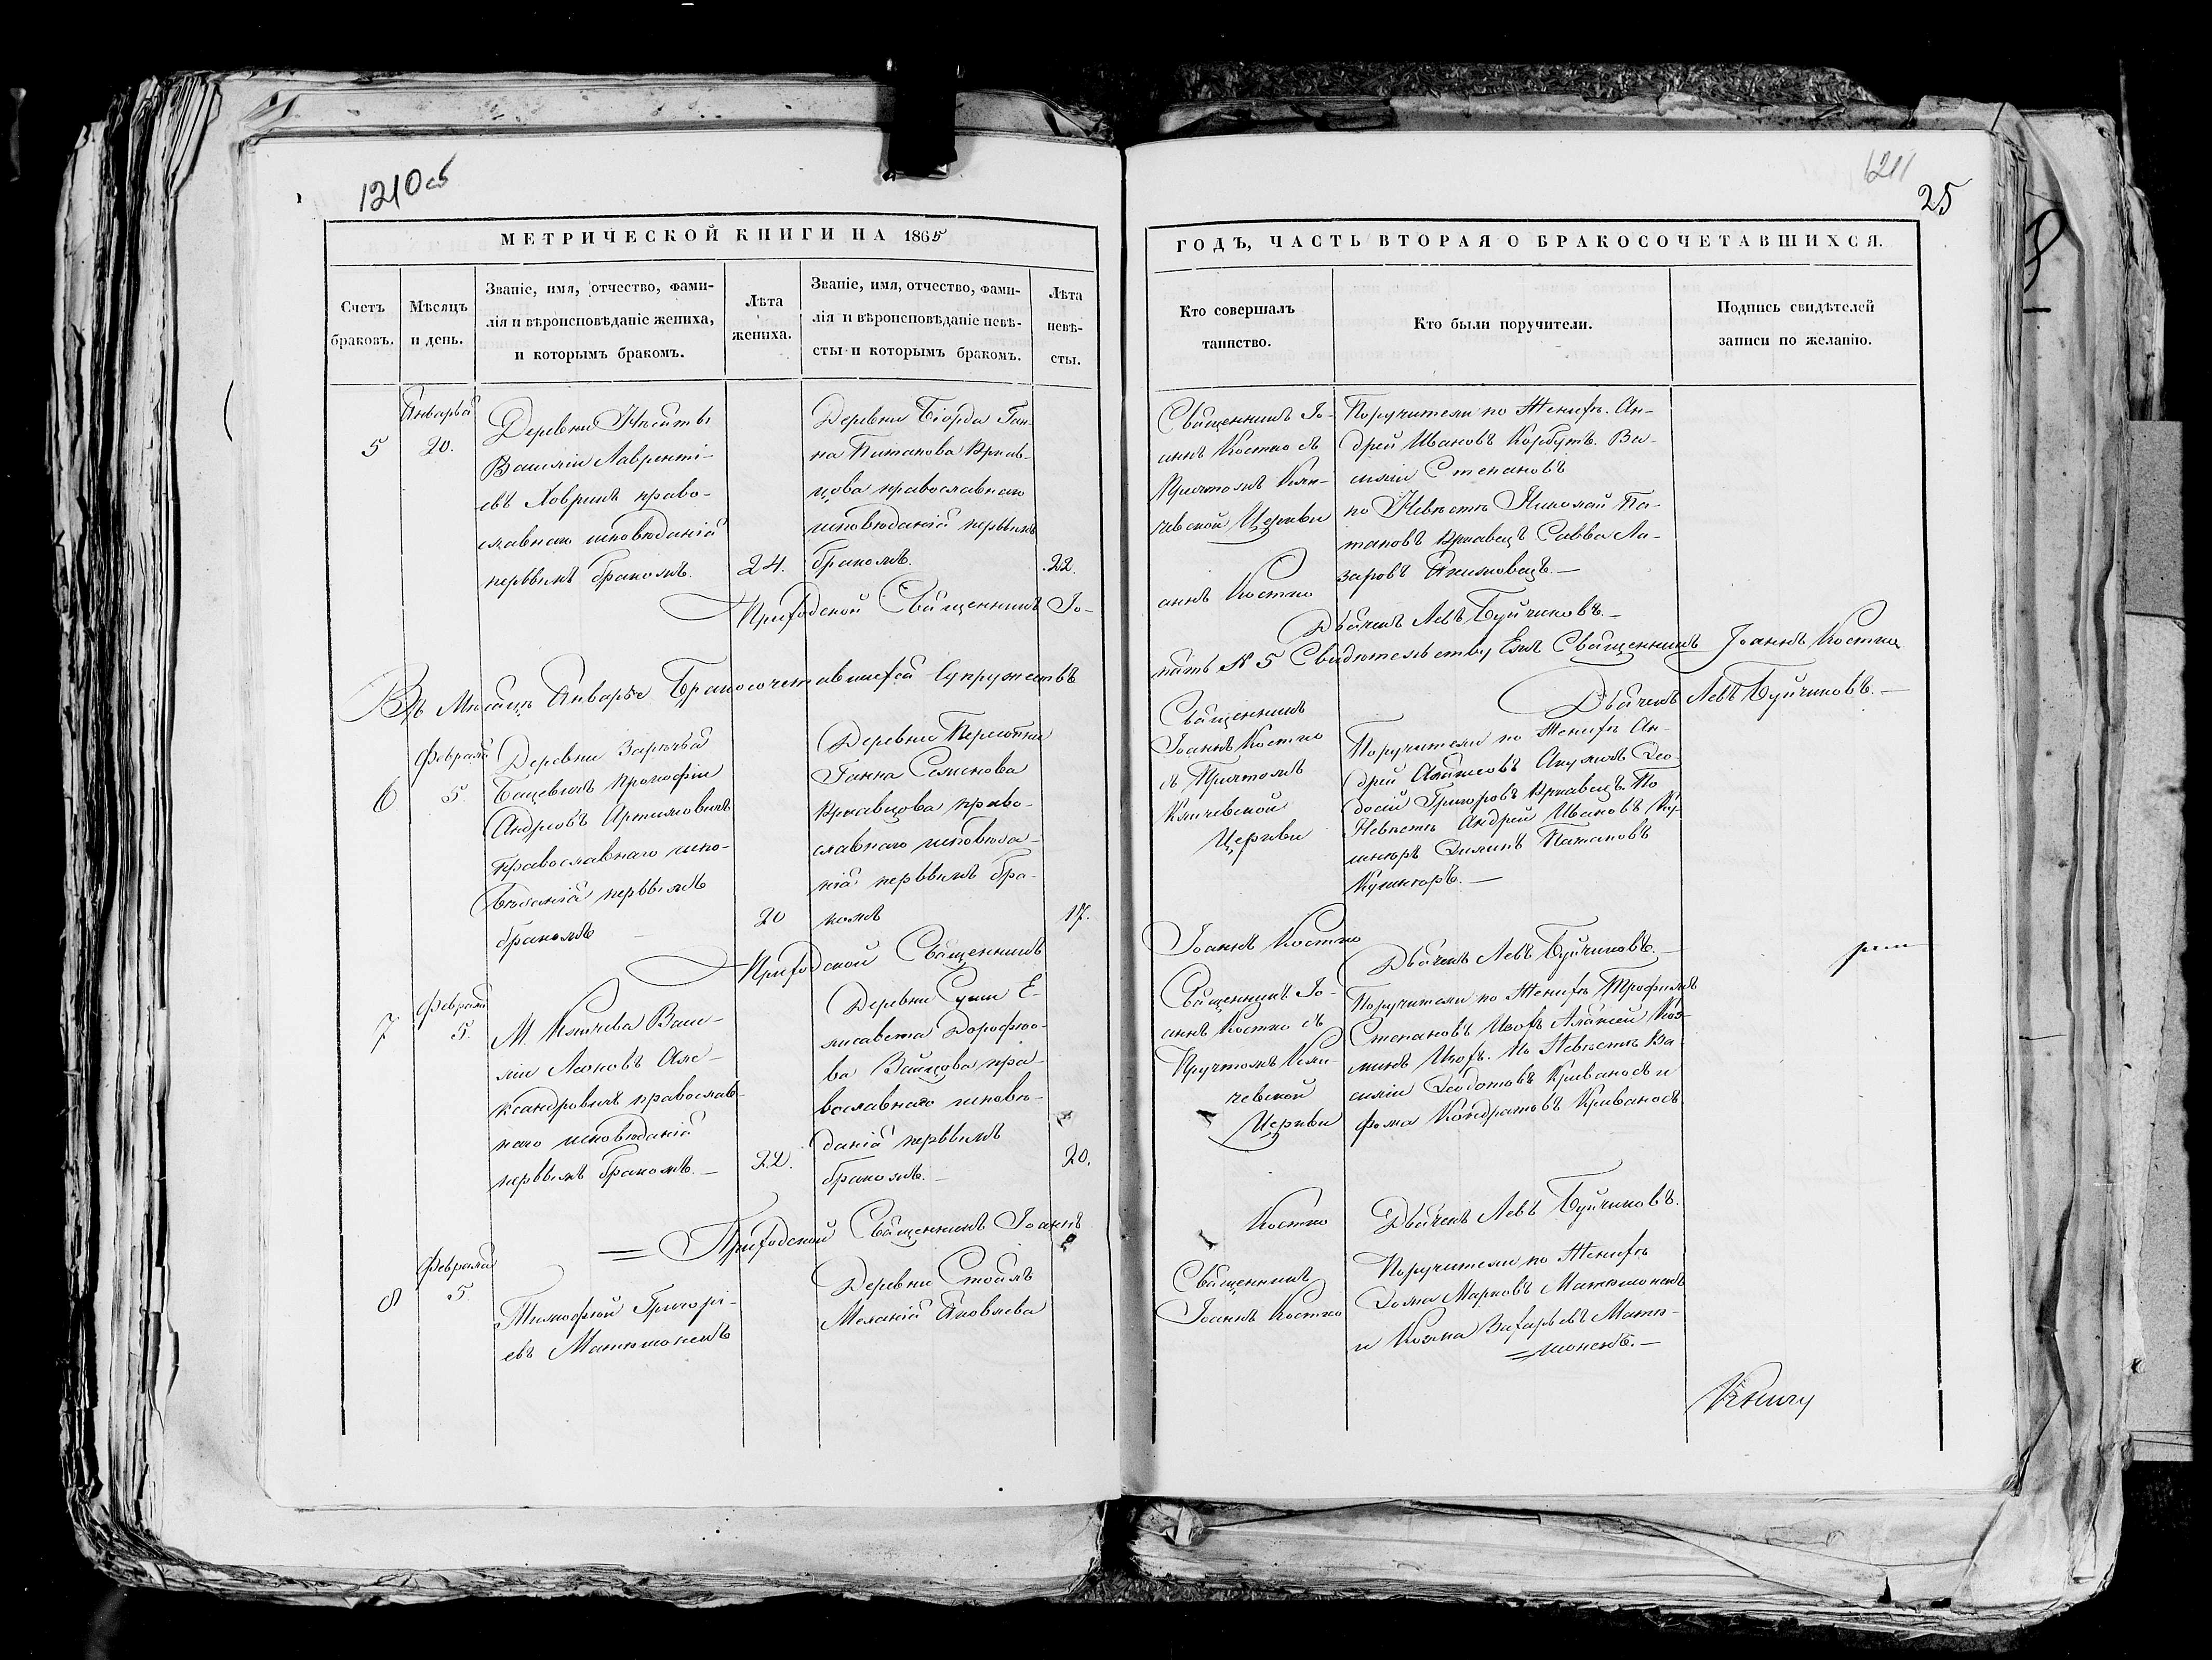 1210об
1211
25
МЕТРИЧЕСКОЙ КНИГИ НА 1865
ГОДЪ, ЧАСТЬ ВТОРАЯ О БРАКОСОЧЕТАВШИХСЯ.
Счетъ
браковъ.
Мѣсяцъ
и день.
Званіе, имя, отчество, фами-
лія и вѣроисповѣданіе жениха,
и которымъ бракомъ.
Лѣта
жениха.
Званіе, имя, отчество, фами-
лія и вѣроисповѣданіе невѣ-
сты и которымъ бракомъ.
Лѣта
невѣ-
сты.
Кто совершалъ
таинство.
Кто были поручители.
Подпись свидѣтелей
записи по желанію.
5
Января
20.
Деревни
Василій Лавренті-
евъ Ховринъ право-
славнаго исповѣданія
первымъ бракомъ.
24.
Деревни Біорда Ган-
на Потапова Кравцова
православнаго
исповѣданія первымъ
бракомъ.
22.
Священникъ Іо-
аннъ Костко съ
Причтомъ Кли-
чевской Церкви
Поручители по Женихѣ. Ан-
дрей Ивановъ Корбутъ. Ва-
силій Степановъ
по Невѣстѣ Николай По-
таповъ Кравецъ Савва Ла-
заровъ Якимовецъ. —
Приходской Священникъ Іо-
аннъ Костко
Дьячекъ Левъ Буйчиковъ. —
Въ Мѣсяцѣ Январѣ Бракосочетавшихся Супружествъ
пять № 5 Свидѣтельствуемъ Священникъ Іоаннъ Костко
Дьячекъ Левъ Буйчиковъ. —
6
Февраля
5.
Деревни Зарѣчья
Бацевичъ Прокофій
Андреевъ Артимовичъ
Православнаго испо-
вѣданія первымъ
бракомъ
20
Деревни
Ганна Семенова
Кравцова право-
славнаго исповѣда-
нія первымъ бра-
комъ
17.
Священникъ
Іоаннъ Костко
съ Причтомъ
Кличевской
Церкви
Поручители по Женихѣ Ан-
дрей
Григоровъ Кравецъ. По
Невѣстѣ Андрей Ивановъ Ку-
Потаповъ
Приходской Священникъ
Іоаннъ Костко
Дьячекъ Левъ Буйчиковъ. —
7
Февраля
5.
М. Кличева Васи-
лій Леоновъ Але-
ксандровичъ православ-
наго исповѣданія
первымъ бракомъ. —
22.
Деревни Суши Е-
лисавета Дорофѣе-
ва Зайцова пра-
вославнаго исповѣ-
данія первымъ
бракомъ. —
20.
Священникъ Іо-
аннъ Костко съ
Причтомъ Кли-
чевской
Церкви
Поручители по Женихѣ Трофимъ
Степановъ
По Невѣстѣ Ва-
силій Ѳедотовъ Кривоносъ и
Фома Кондратовъ Кривоносъ
= Приходской Священникъ Іоаннъ
Костко
Дьячекъ Левъ Буйчиковъ.
8
Февраля
5.
Тимофѣй Григорі-
евъ Матюшонекъ
Деревни Стоялъ
Меланія Яковлева
Священникъ
Іоаннъ Костко
Поручители по Женихѣ
Марковъ Матюшонекъ
и Козма Захарьевъ Матю-
=шонекъ. —
Книгу